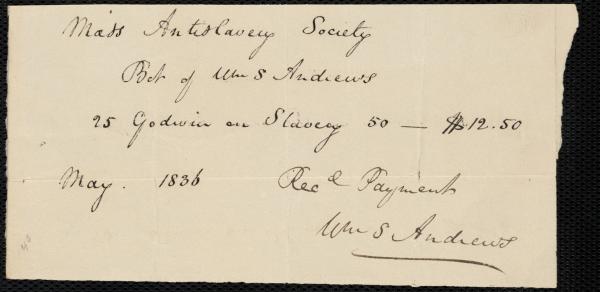 Mass Antislavery Society
Bot of Wm S Andrews
25 Godwin on Slavery 50 — $12.50
May. 1836 Recd Payment
Wm S Andrews